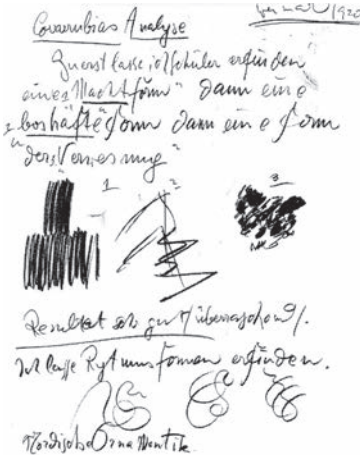 Covarrubias Analyse
Weimar 1920
Zuerst lasse ich Schüler erfinden
eine "Machtform" dann eine
"boshafte" Form dann eine Form
der "Verwesung"
1 2 3
Resultat sehr gut / überraschend /.
Ich lasse Rytmusformen erfinden.
Nordische Ornamentik